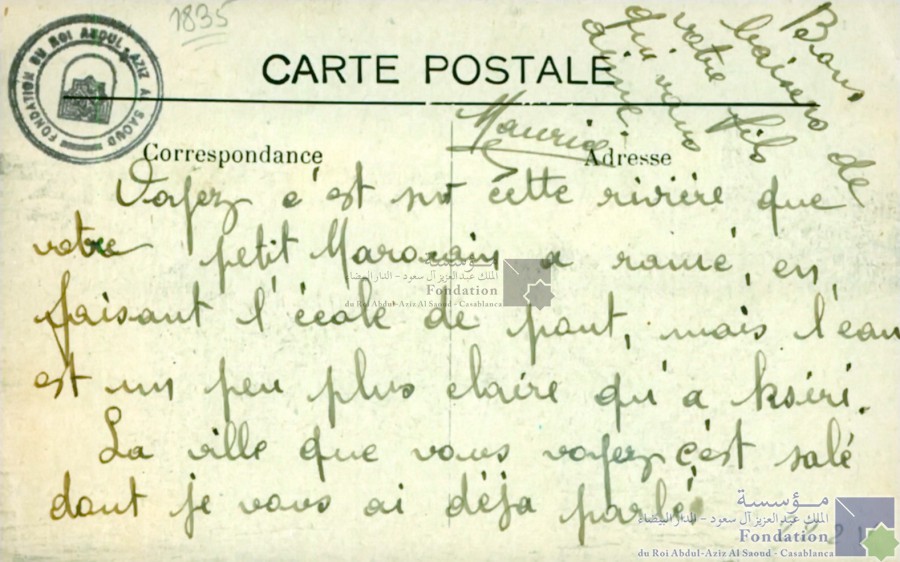 1835
FONDATION DU ROI ABDUL-AZIZ AL SAOUD
CARTE POSTALE
Correspondance
Adresse
Voyez c'est sur cette rivière que
votre petit Marocain a ramé, en
faisant l'école de pont, mais l'eau
est un peu plus claire qu'a ksiri.
La ville que vous voyez c'est salé
dont je vous ai déja parlé
Bons
baisers de
votre fils
qui vous
aime
Maurice
مؤسسة
الملك عبد العزيز آل سعود - الدار البيضاء
Fondation
du Roi Abdul-Aziz Al Saoud - Casablanca
مؤسسة
الملك عبد العزيز آل سعود - الدار البيضاء
Fondation
du Roi Abdul-Aziz Al Saoud - Casablanca